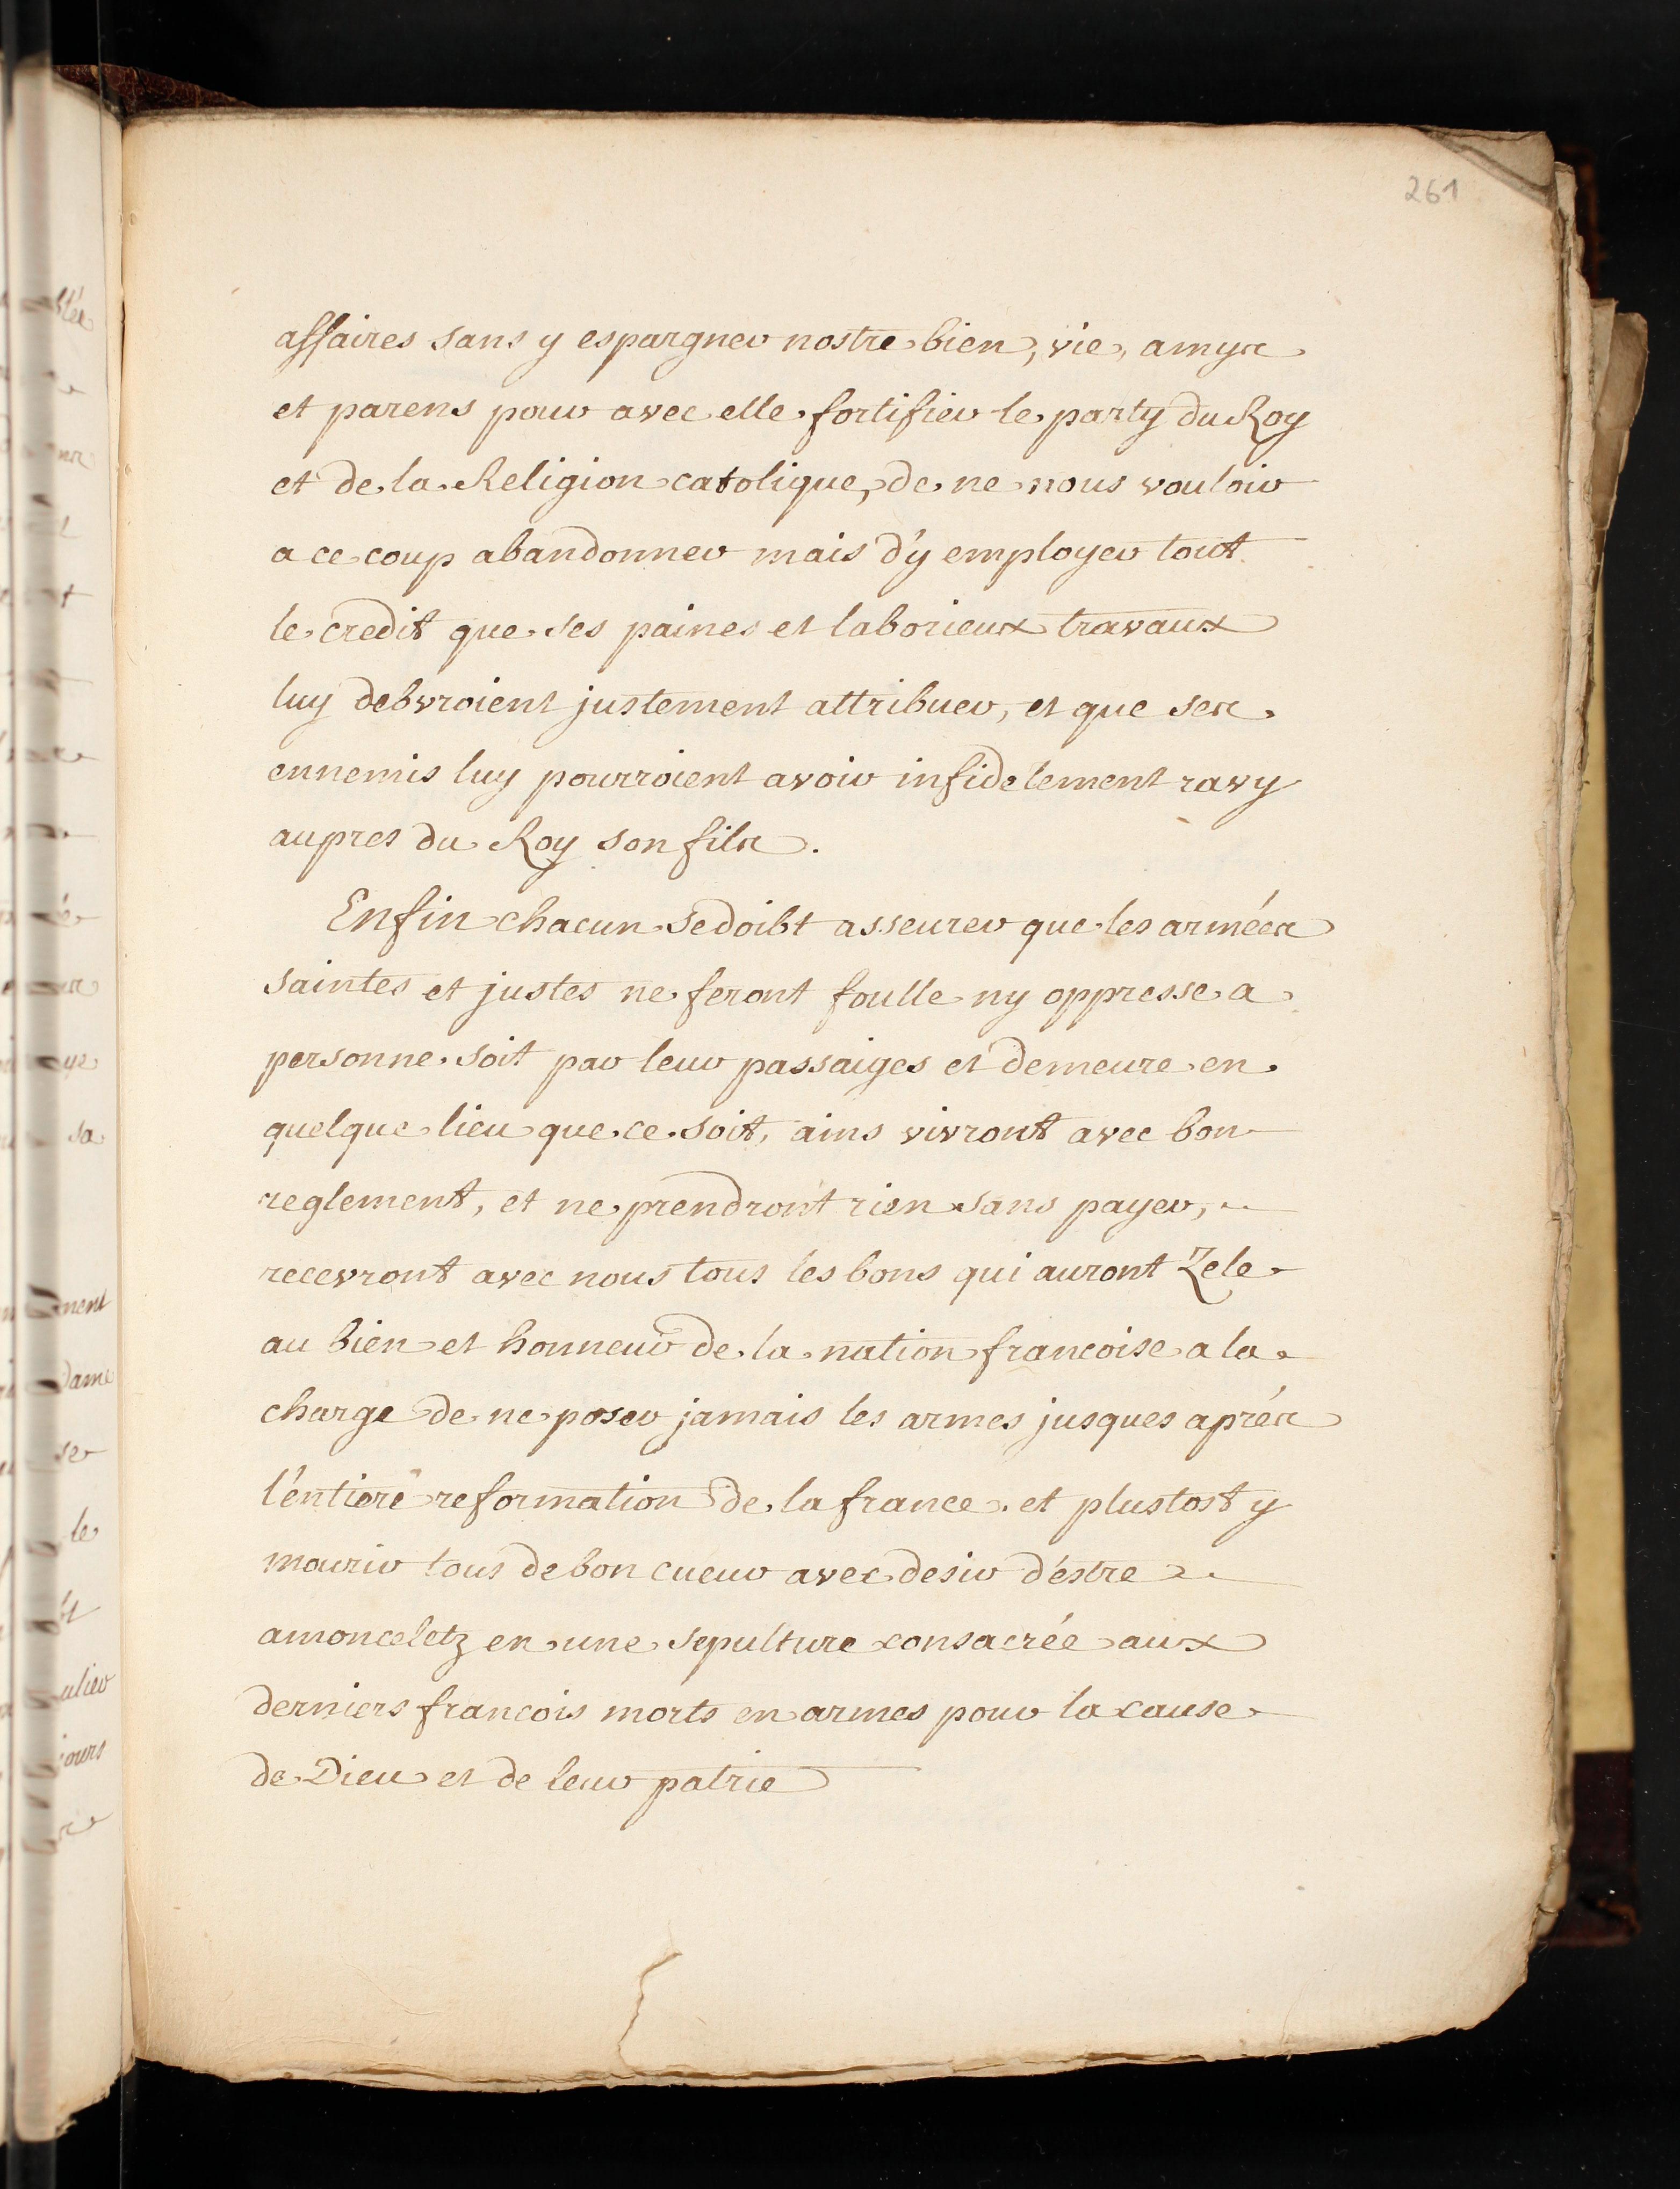 261
affaires sans y espargner nostre bien, vie, amys
et parens pour avec elle fortifier le party du Roy
et de la Religion catolique, de ne nous vouloir
a ce coup abandonner mais d'y employer tout
le credit que ses paines et laborieux travaux
luy debvroient justement attribuer, et que ses
ennemis luy pourroient avoir infidelement ravy
aupres du Roy son fils.
Enfin chacun se doibt asseurer que les armées
saintes et justes ne feront foulle ny oppresse a
personne soit par leur passaiges et demeure en
quelque lieu que ce soit, ains vivront avec bon
reglement, et ne prendront rien sans payer,
recevront avec nous tous les bons qui auront Zele
au bien et honneur de la nation francoise a la
charge de ne poser jamais les armes jusques aprés
l'entiere reformation de la france. et plustost y
mourir tous de bon cueur avec desir d'estre
amonceletz en une sepulture consacrée aux
derniers francois morts en armes pour la cause
de Dieu et de leur patrie